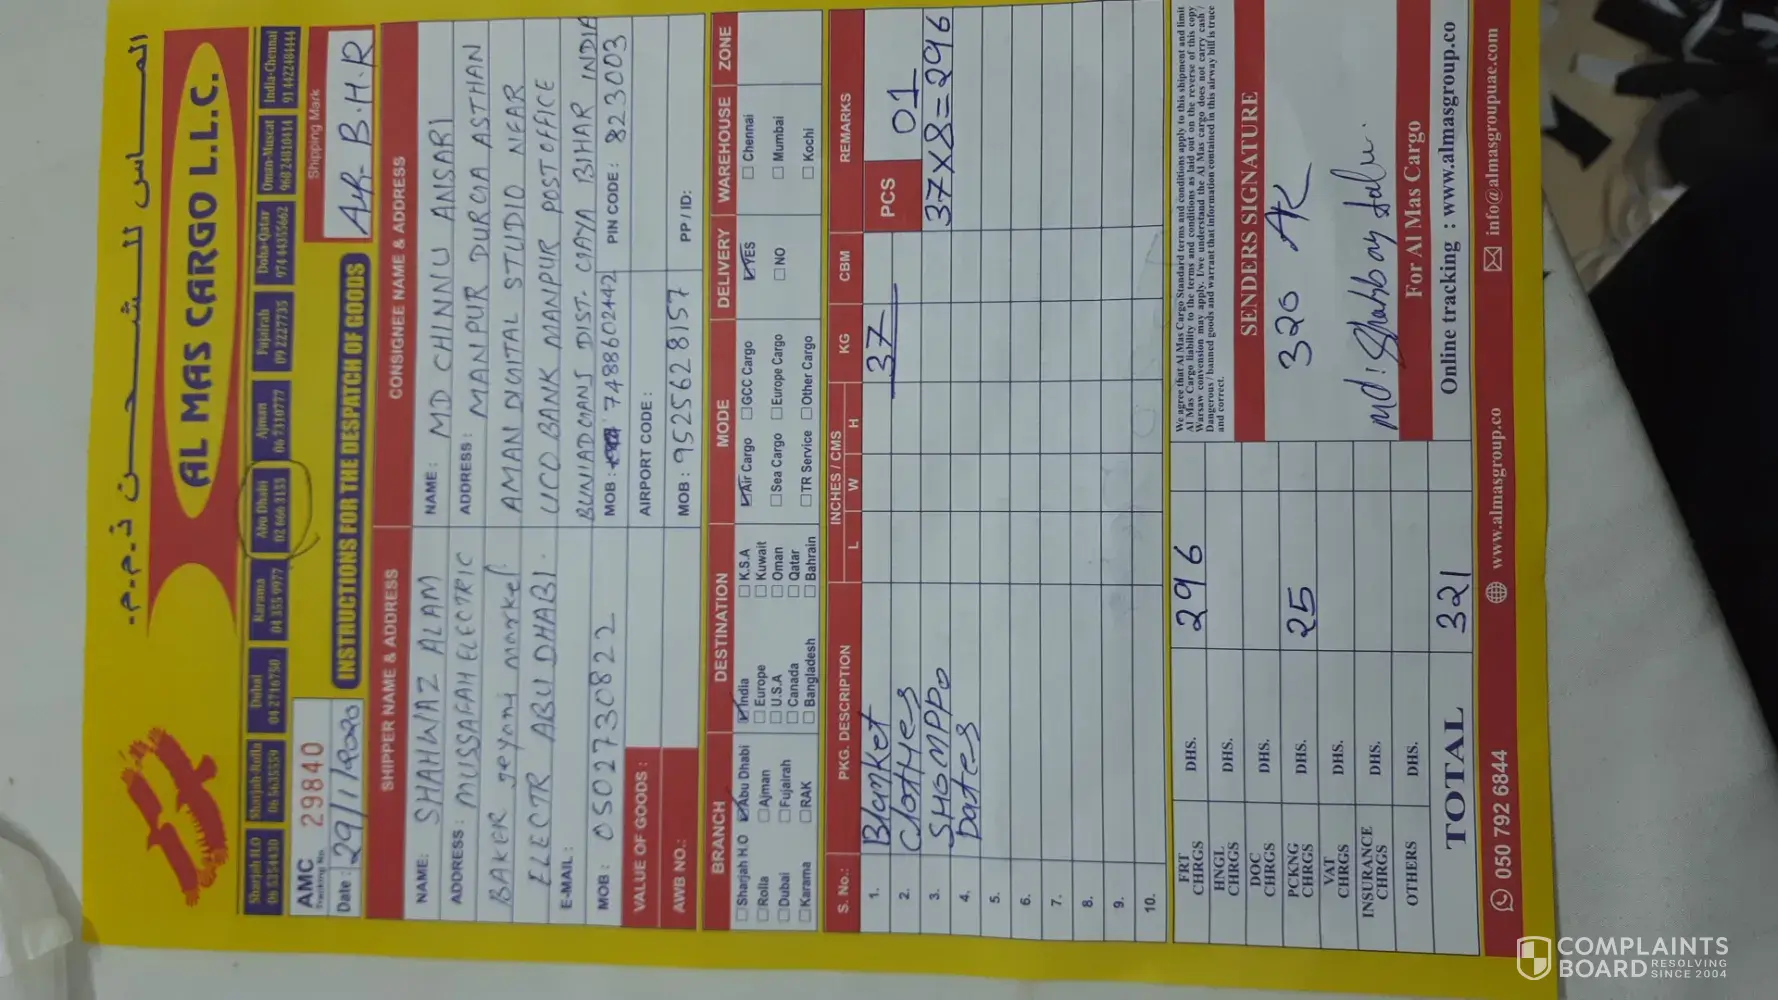 الماس للشحن ذ.م.م.
AL MAS CARGO L.L.C.
Sharjah H.O 06 5354430
Sharjah-Rolla 06 5635559
Dubai 04 2716750
Karama 04 355 9977
Abu Dhabi 02 666 3155
Ajman 06 7310777
Fujairah 09 2227735
Doha-Qatar 074 4435662
Oman-Muscat 968 24810414
India-Chennai 91 4422484444
AMC 29840
Tracking No.
Date: 29/1/2020
INSTRUCTIONS FOR THE DESPATCH OF GOODS
Shipping Mark
AIR B.H.R
SHIPPER NAME & ADDRESS
NAME: SHAHWAZ ALAM
ADDRESS: MUSSAFAH ELECTRIC
BAKER jeyoni market
ELECTR ABU DHABI.
E-MAIL:
MOB: 0502730822
VALUE OF GOODS:
AWB NO.:
CONSIGNEE NAME & ADDRESS
NAME: MD CHINNU ANSARI
ADDRESS: MANPUR DURGA ASTHAN
AMAN DIGITAL STUDIO NEAR
UCO BANK MANPUR POST OFFICE
BUNIADGANJ DIST. GAYA BIHAR INDIA
MOB: 7488602442 PIN CODE: 823003
AIRPORT CODE:
MOB: 9525628157 PP / ID:
BRANCH DESTINATION MODE DELIVERY WAREHOUSE ZONE
Sharjah H.O Abu Dhabi India K.S.A Air Cargo GCC Cargo YES Chennai
Rolla Ajman Europe Kuwait
Dubai Fujairah U.S.A Oman Sea Cargo Europe Cargo NO Mumbai
Canada Qatar
Karama RAK Bangladesh Bahrain TR Service Other Cargo Kochi
S. No.: PKG. DESCRIPTION INCHES / CMS L W H KG CBM REMARKS
1. Blanket 37 PCS 01
2. Clothes
3. SHOMPPO 37X8=296
4. Dates
5.
6.
7.
8.
9.
10.
FRT CHRGS DHS. 296
HNGL CHRGS DHS.
DOC CHRGS DHS.
PCKNG CHRGS DHS. 25
VAT CHRGS DHS.
INSURANCE CHRGS DHS.
OTHERS DHS.
TOTAL 321
We agree that Al Mas Cargo Standard terms and conditions apply to this shipment and limit
Al Mas Cargo liability to the terms and conditions as laid out on the reverse of this copy
Warsaw convension may apply. I/we understand the Al Mas cargo does not carry cash /
Dangerous / banned goods and warrant that information contained in this airway bill is truce
and correct.
SENDERS SIGNATURE
320 AK
For Al Mas Cargo
Online tracking : www.almasgroup.co
050 792 6844 www.almasgroup.co info@almasgroupuae.com
COMPLAINTS
BOARD RESOLVING SINCE 2004